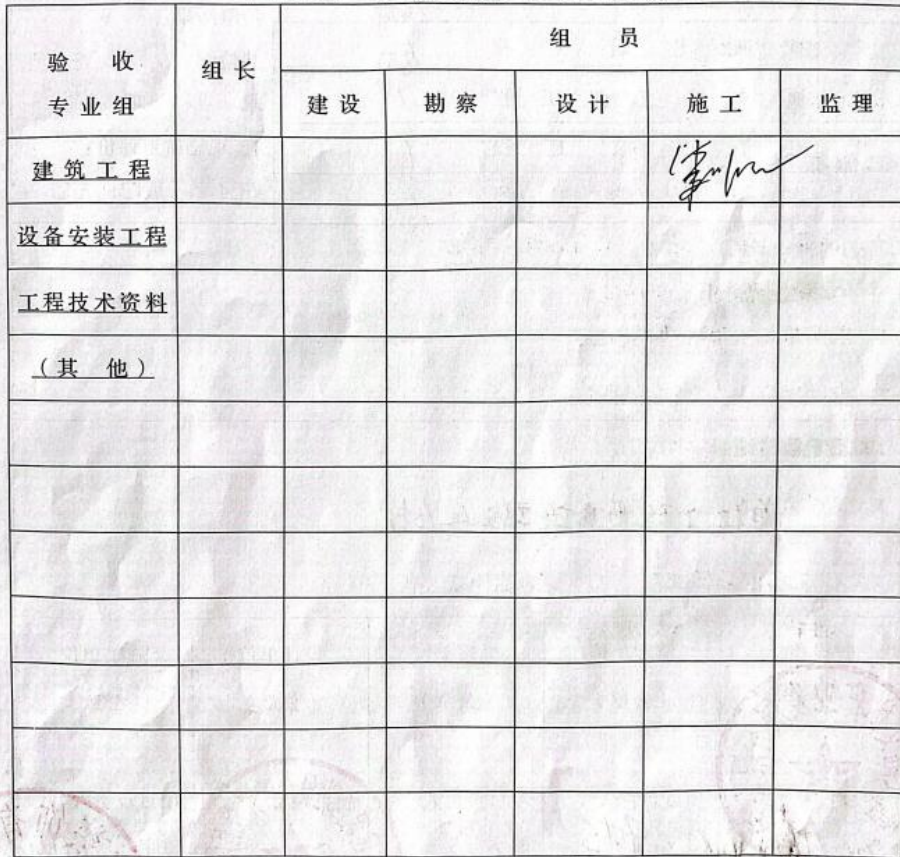 组 员
验 收
专业组
组 长
建 设
勘 察
设 计
施 工
监 理
建 筑 工 程
设备安装工程
工程技术资料
（其 他）